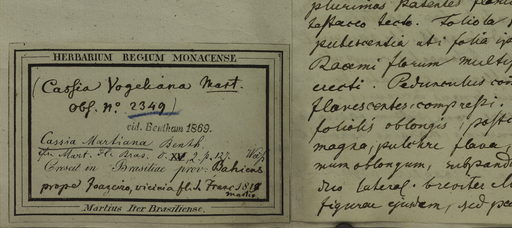 HERBARIUM REGIUM MONACENSE
(Cassia Vogeliana Mart.
Obs. No. 2349)
vid. Bentham 1869.
Cassia Martiana Benth.
in Mart. Fl. Bras. XV, 2. p. 127.
Crescit in Brasiliae prov. Bahiensi
prope Joazeiro, vicinia fl. S. Franc. 1819
Martio
Martius Iter Brasiliense.
plurimos patentes
testaceo tecto. Foliola
pubescentia uti folia
Racemi florum
erecti. Pedunculus
flavescentes, compressi.
foliolis oblongis,
magna, pulchre flava,
oblongum,
lateral. breviter
figurae ejusdem, sed